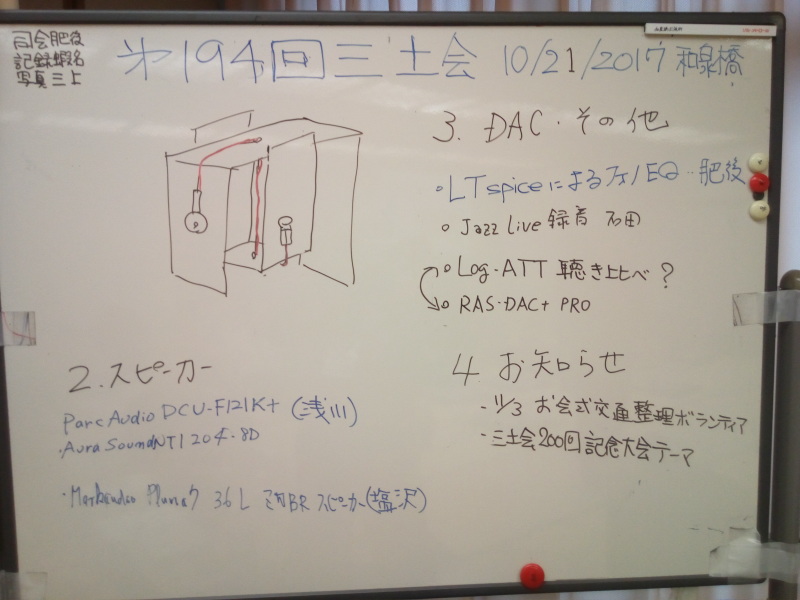 司会肥後
記録蝦名
写真三上
第194回三土会 10/21/2017 和泉橋
3. DAC・その他
・LTspiceによるフォノEQ…肥後
○Jazz Live 録音 石田
○Log・ATT 聴き比べ?
○RAS・DAC+ PRO
2. スピーカー
Parc Audio DCU-F121K+ (浅川)
・Aura Sound NT1 204-8D
・Markaudio Pluvia7 36L BR スピーカー(塩沢)
4 お知らせ
・11/3 お会式交通整理ボランティア
・三土会200回記念大会テーマ